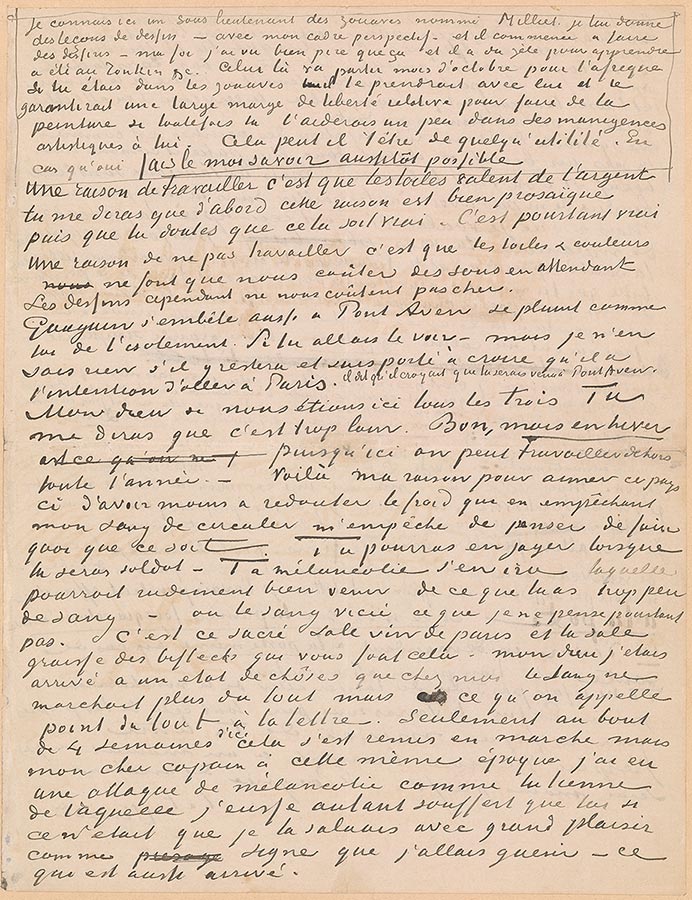 je connais ici un sous lieutenant des zouaves nommé Milliet. je lui donne
des leçons de dessin – avec mon cadre perspectif – et il commence à faire
des dessins – ma foi j'ai vu bien pire que ça et il a du zèle pour apprendre
a été au Tonkin &c. Celui là va partir mois d'octobre pour l'afrique
Si tu étais dans les zouaves il te prendrait avec lui et te
garantirait une large marge de liberté relative pour faire de la
peinture si toutefois tu l'aiderais un peu dans ses manigences
artistiques à lui. Cela peut il t'être de quelqu'utilité. En
cas qu'oui fais le moi savoir aussitôt possible
Une raison de travailler c'est que les toiles valent de l'argent
tu me diras que d'abord cette raison est bien prosaïque
puis que tu doutes que cela soit vrai. C'est pourtant vrai
Une raison de ne pas travailler c'est que les toiles & couleurs
nous ne font que nous coûter des sous en attendant
Les dessins cependant ne nous coûtent pas cher.
Gauguin s'embête aussi à Pont Aven se plaint comme
toi de l'isolement. Si tu allais le voir – mais je n'en
sais rien s'il y restera et suis porté à croire qu'il a
l'intention d'aller à Paris. il dit qu'il croyait que tu serais venu à Pont Aven.
Mon dieu si nous étions ici tous les trois Tu
me diras que c'est trop loin. Bon, mais en hiver
est ce qu'on ne puisqu'ici on peut travailler dehors
toute l'année. – Voilà ma raison pour aimer ce pays
ci d'avoir moins a redouter le froid qui en empêchant
mon sang de circuler m'empêche de penser de faire
quoi que ce soit. Tu pourras en juger lorsque
tu seras soldat – Ta mélancolie s'en ira laquelle
pourrait rudement bien venir de ce que tu as trop peu
de sang – ou le sang vicié ce que je ne pense pourtant
pas. C'est ce sacré sale vin de paris et la sale
graisse des biftecks qui vous font cela – mon dieu j'étais
arrivé a un etat de chôses que chez moi le sang ne
marchait plus du tout mais ce qu'on appelle
point du tout à la lettre. Seulement au bout
de 4 semaines d'ici cela s'est remis en marche mais
mon cher copain à cette même époque j'ai eu
une attaque de mélancolie comme la tienne
de laquelle j'eusse autant souffert que toi si
ce n'était que je la saluais avec grand plaisir
comme signe que j'allais guérir – ce
qui est aussi arrivé.